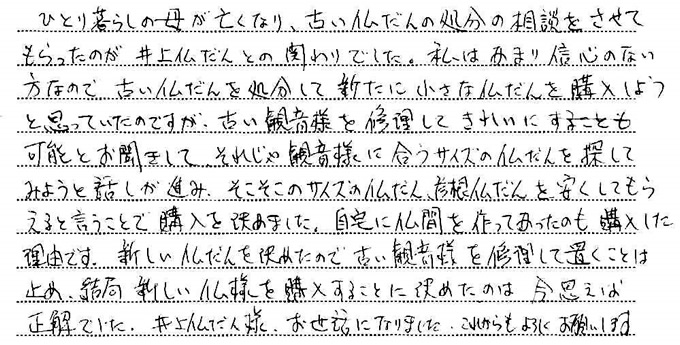 ひとり暮らしの母が亡くなり、古い仏だんの処分の相談をさせて
もらったのが井上仏だんとの関わりでした。私はあまり信心のない
方なので古い仏だんを処分して新たに小さな仏だんを購入しよう
と思っていたのですが、古い観音様を修理してきれいにすることも
可能とお聞きして、それじゃ観音様に合うサイズの仏だんを探して
みようと話しが進み、そこそこのサイズの仏だん、彦根仏だんを安くしてもら
えると言うことで購入を決めました。自宅に仏間を作ってあったのも購入した
理由です。新しい仏だんを決めたので古い観音様を修理して置くことは
止め、結局新しい仏様を購入することに決めたのは今思えば
正解でした。井上仏だん様、お世話になりました。これからもよろしくお願いします